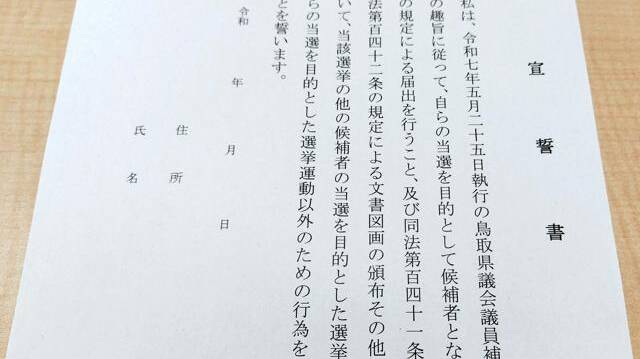 宣誓書
私は、令和七年五月二十五日執行の鳥取県議会議員補
の趣旨に従って、自らの当選を目的として候補者とな
の規定による届出を行うこと、及び同法第百四十一条
法第百四十二条の規定による文書図画の頒布その他
いて、当該選挙の他の候補者の当選を目的とした選挙
らの当選を目的とした選挙運動以外のための行為を
とを誓います。
令和 年 月 日
住所
氏名